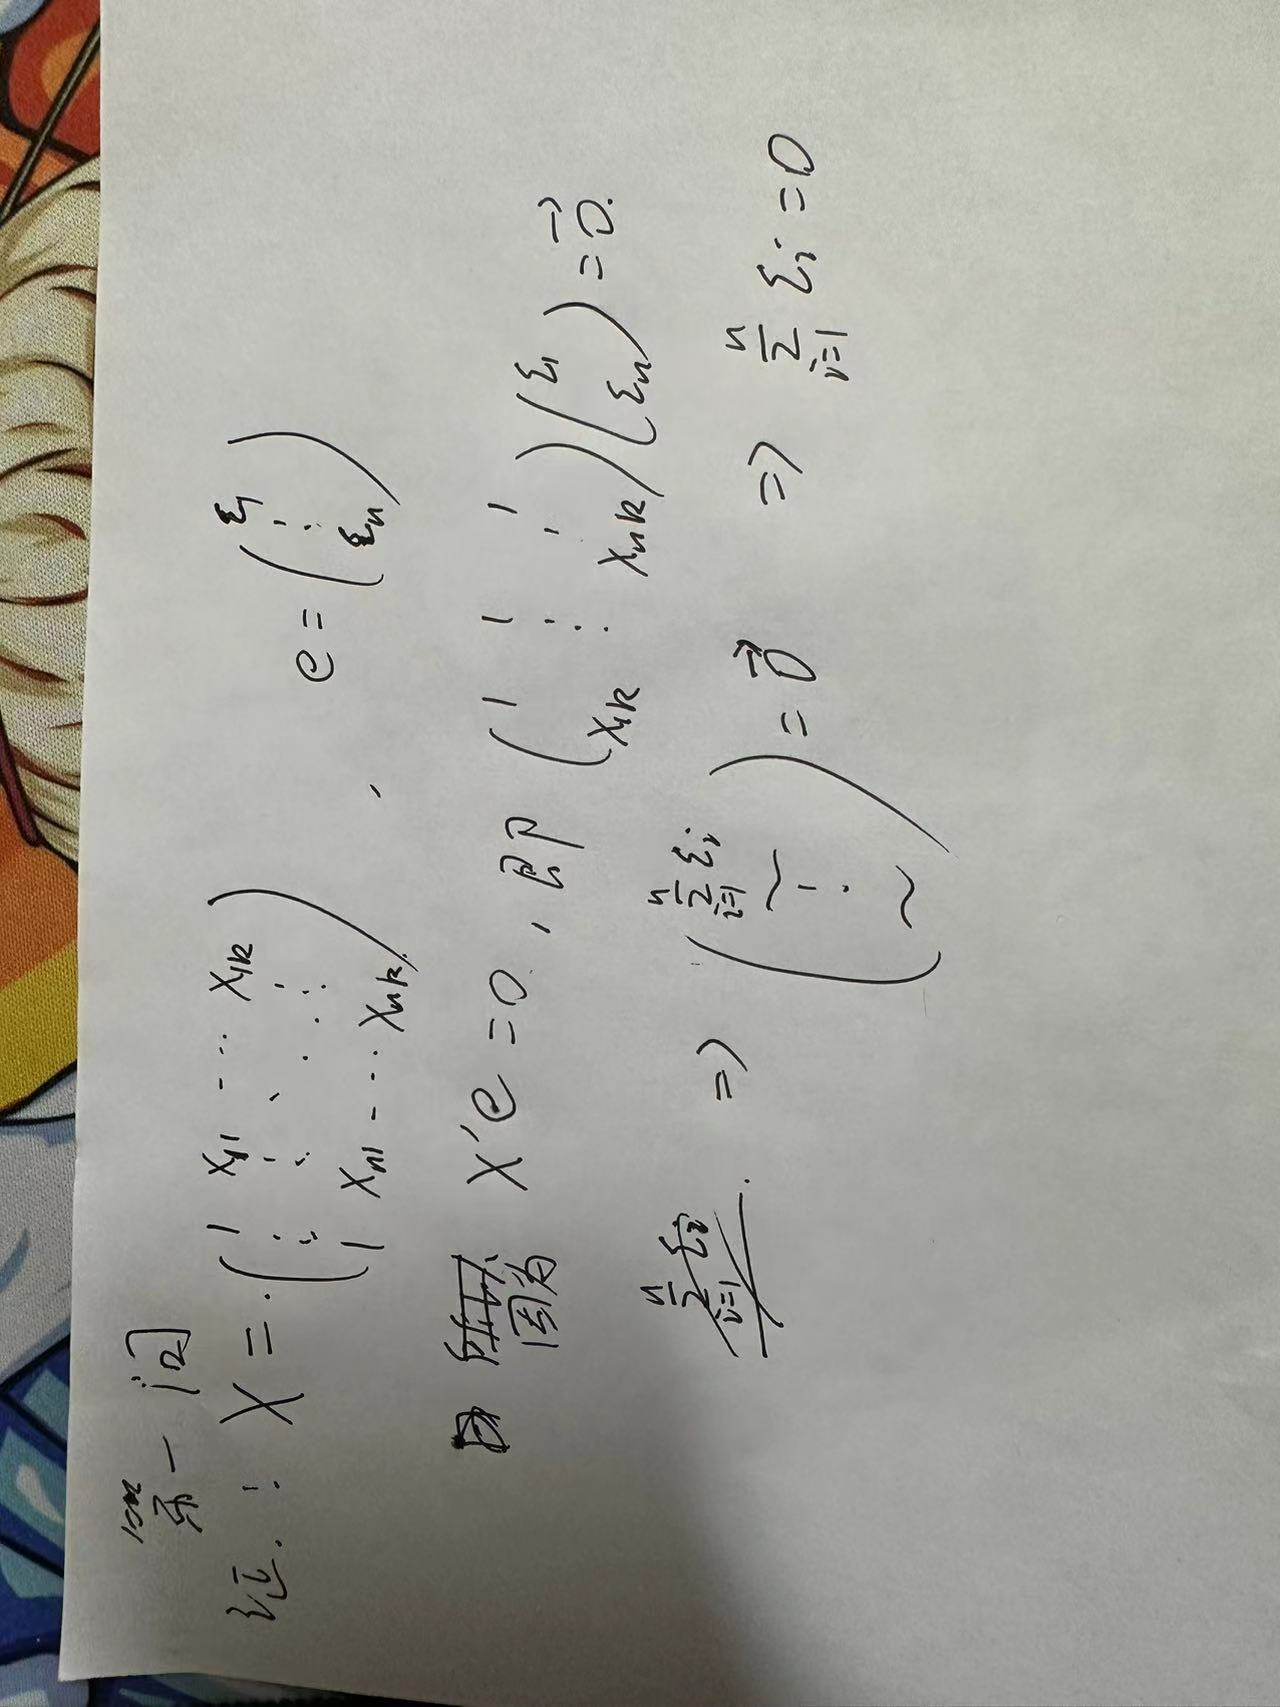 第一问
证: X = ( 1 x₁₁ ⋯ x₁ₖ ⋮ ⋮ ⋱ ⋮ 1 xₙ₁ ⋯ xₙₖ ) , e = ( ε₁ ⋮ εₙ )
因为 X'e = 0, 即 ( 1 1 ⋯ 1 ⋮ x₁ₖ xₙₖ ) ( ε₁ εₙ ) = 0⃗.
∑ᵢ₌₁ⁿ εᵢ ⇒ ( ∑ᵢ₌₁ⁿ εᵢ ~ ⋮ ~ ) = 0⃗ ⇒ ∑ᵢ₌₁ⁿ εᵢ = 0